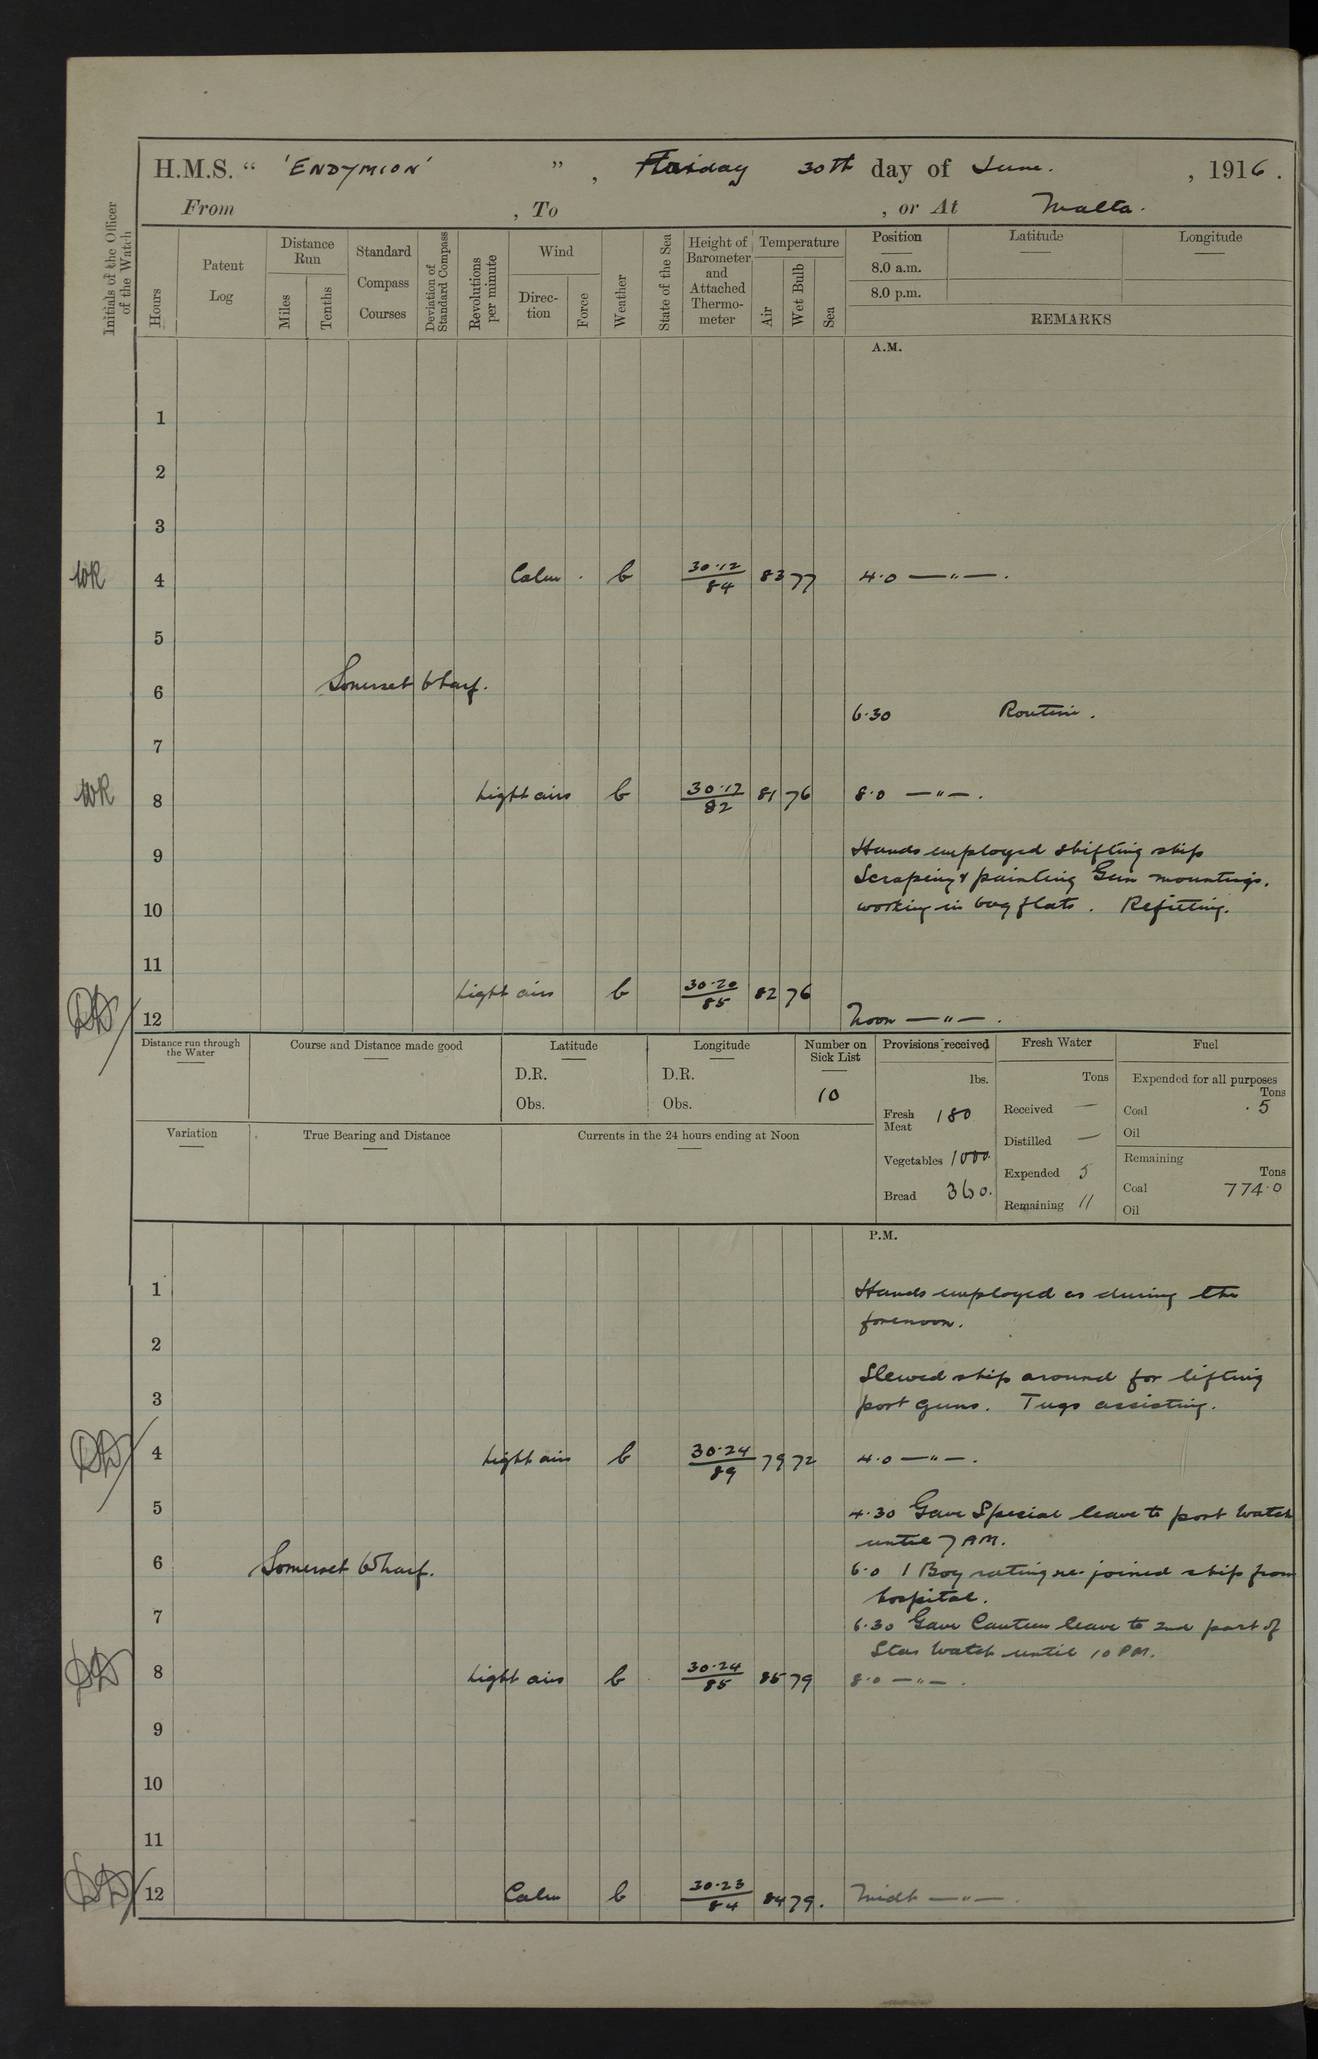 H.M.S. " 'ENDYMION' ", Friday 30th day of June. , 1916.
From , To , or At Malta.
Initials of the Officer of the Watch
Hours
Patent Log
Distance Run
Miles
Tenths
Standard Compass Courses
Deviation of Standard Compass
Revolutions per minute
Wind
Direction
Force
Weather
State of the Sea
Height of Barometer and Attached Thermometer
Temperature
Air
Wet Bulb
Sea
Position
Latitude
Longitude
8.0 a.m.
8.0 p.m.
REMARKS
A.M.
1
2
3
WR 4 Calm . b 30.12/84 83 77 4.0 — " — .
5
6 Somerset Wharf.
6.30 Routine .
7
WR 8 Light airs b 30.12/82 81 76 8.0 — " — .
9 Hands employed shifting ship
Scraping & painting Gun mountings.
10 working in bag flats . Refitting.
11
12 Light airs b 30.20/85 82 76
Noon — " — .
Distance run through the Water
Course and Distance made good
Latitude
D.R.
Obs.
Longitude
D.R.
Obs.
Number on Sick List
10
Provisions received
lbs.
Fresh Meat 180
Vegetables 1000
Bread 360.
Fresh Water
Tons
Received —
Distilled —
Expended 5
Remaining 11
Fuel
Expended for all purposes
Tons
Coal . 5
Oil
Remaining
Tons
Coal 774.0
Oil
Variation
True Bearing and Distance
Currents in the 24 hours ending at Noon
P.M.
1 Hands employed as during the
forenoon.
2
Slewed ship around for lifting
3 port guns. Tugs assisting.
4 Light airs b 30.24/89 79 72 4.0 — " — .
5 4.30 Gave Special leave to port Watch
until 7 AM.
6 Somerset Wharf. 6.0 1 Boy rating re-joined ship from
hospital.
7 6.30 Gave Canteen leave to 2nd part of
Star Watch until 10 PM.
8 Light airs b 30.24/85 85 79 8.0 — " — .
9
10
11
12 Calm b 30.23/84 84 79. Midt — " — .